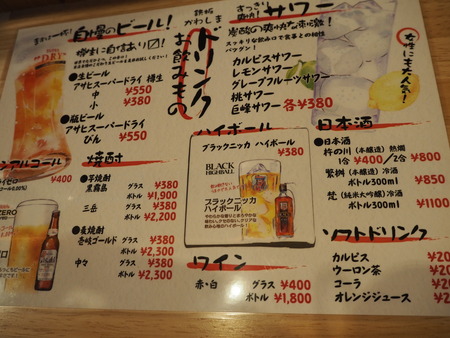 まずは一杯!
自慢のビール!
樽生に自信あり〼!
●生ビール
アサヒスーパードライ 樽生
中 ¥550
小 ¥380
●瓶ビール
アサヒスーパードライ
びん ¥550
鉄板
かわしま
ドリンク
お飲みもの
すっきり
爽快!
サワー
炭酸の爽快な刺激!
スッキリな飲み口で食事との相性
バツグン!
カルピスサワー
レモンサワー
グレープフルーツサワー
桃サワー
巨峰サワー 各¥380
女性にも大人気!
ノンアルコール
¥400
ZERO
焼酎
●芋焼酎
黒霧島 グラス ¥380
ボトル ¥1,900
三岳 グラス ¥380
ボトル ¥2,200
●麦焼酎
壱岐ゴールド グラス ¥380
ボトル ¥2,300
中々 グラス ¥380
ボトル ¥2,300
ハイボール
ブラックニッカ ハイボール
¥380
BLACK
HIGHBALL
ブラックニッカ
ハイボール
ワイン
赤・白 グラス ¥400
ボトル ¥1,800
日本酒
●日本酒
杵の川 (本醸造) 熱燗
1合 ¥400/2合 ¥800
繁桝 (本醸造) 冷酒
ボトル300ml ¥850
梵 (純米大吟醸) 冷酒
ボトル300ml ¥1100
ソフトドリンク
カルピス ¥20
ウーロン茶 ¥20
コーラ ¥20
オレンジジュース ¥2